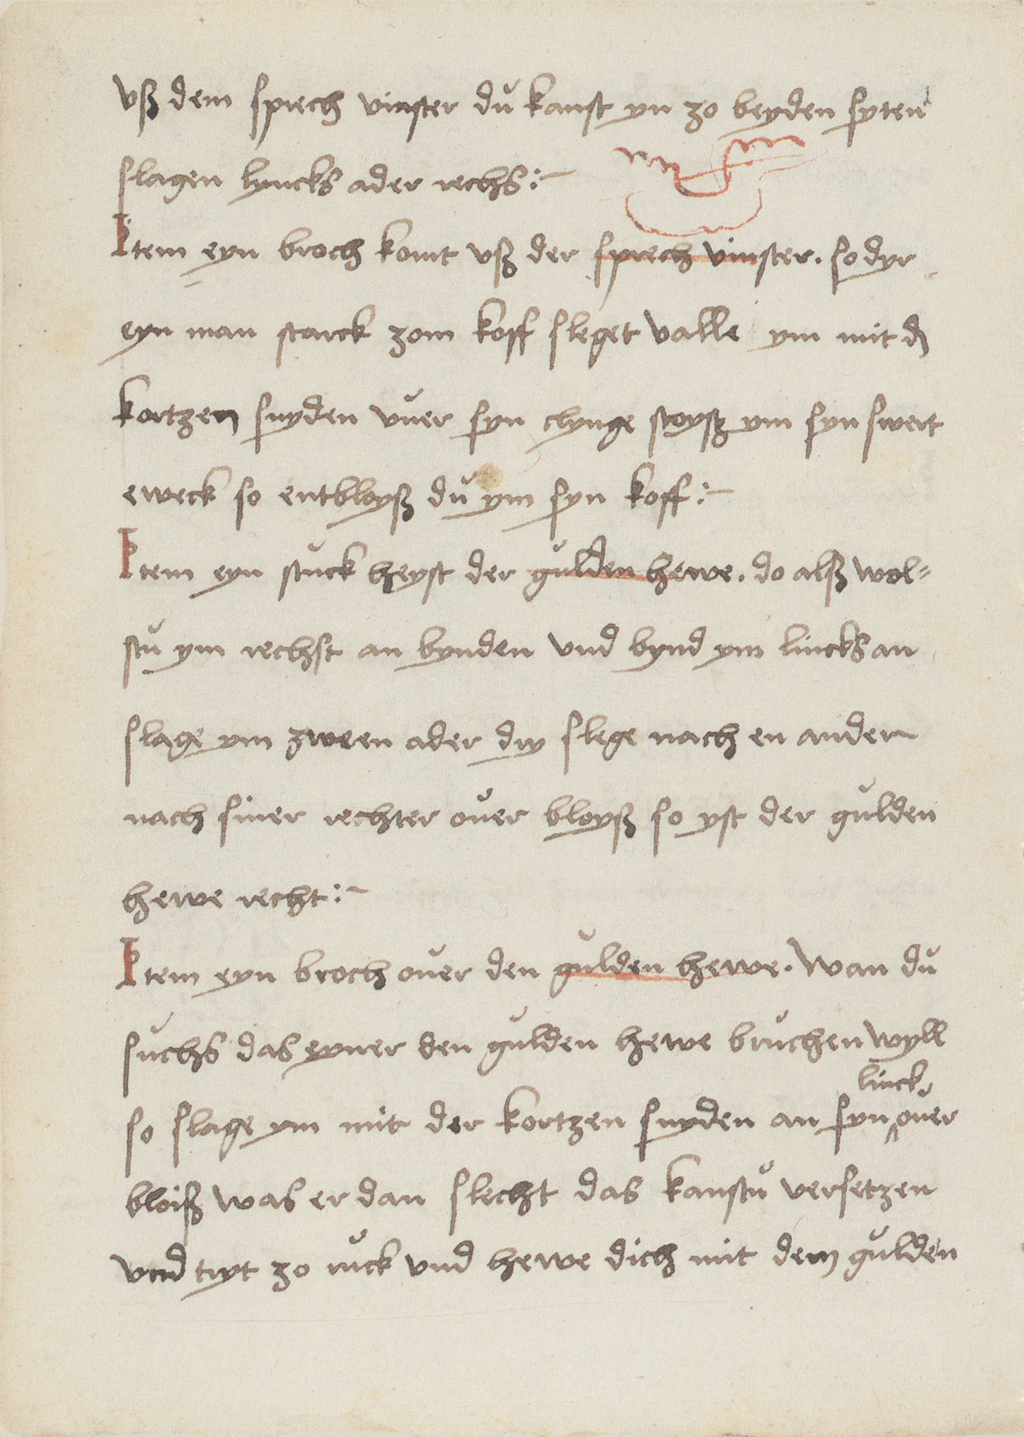 vß dem sprech vinster du kanst yn zo beyden syten
slagen lyncks ader rechs :~
Item eyn broch komt vß der sprech vinster. so dyr
eyn man starck zom koff sleget valle ym mit d
kortzen snyden vuer syn clynge stoysz ym syn swert
eweck so entbloyß du ym syn koff :~
Item eyn stuck heyst der gulden hewe. do alß wol=
stu ym rechst an bynden vnd bynd ym lincks an
slage ym zween ader dry slege nach en ander
nach siner rechter ouer bloyß so yst der gulden
hewe recht :~
Item eyn broch ouer den gulden hewe. Wan du
suchs das eyner den gulden hewe bruchen wyll
so slage ym mit der kortzen snyden an syn linck ouer
bloiß was er dan slecht das kanstu versetzen
vnd tryt zo ruck vnd hewe dich mit dem gulden